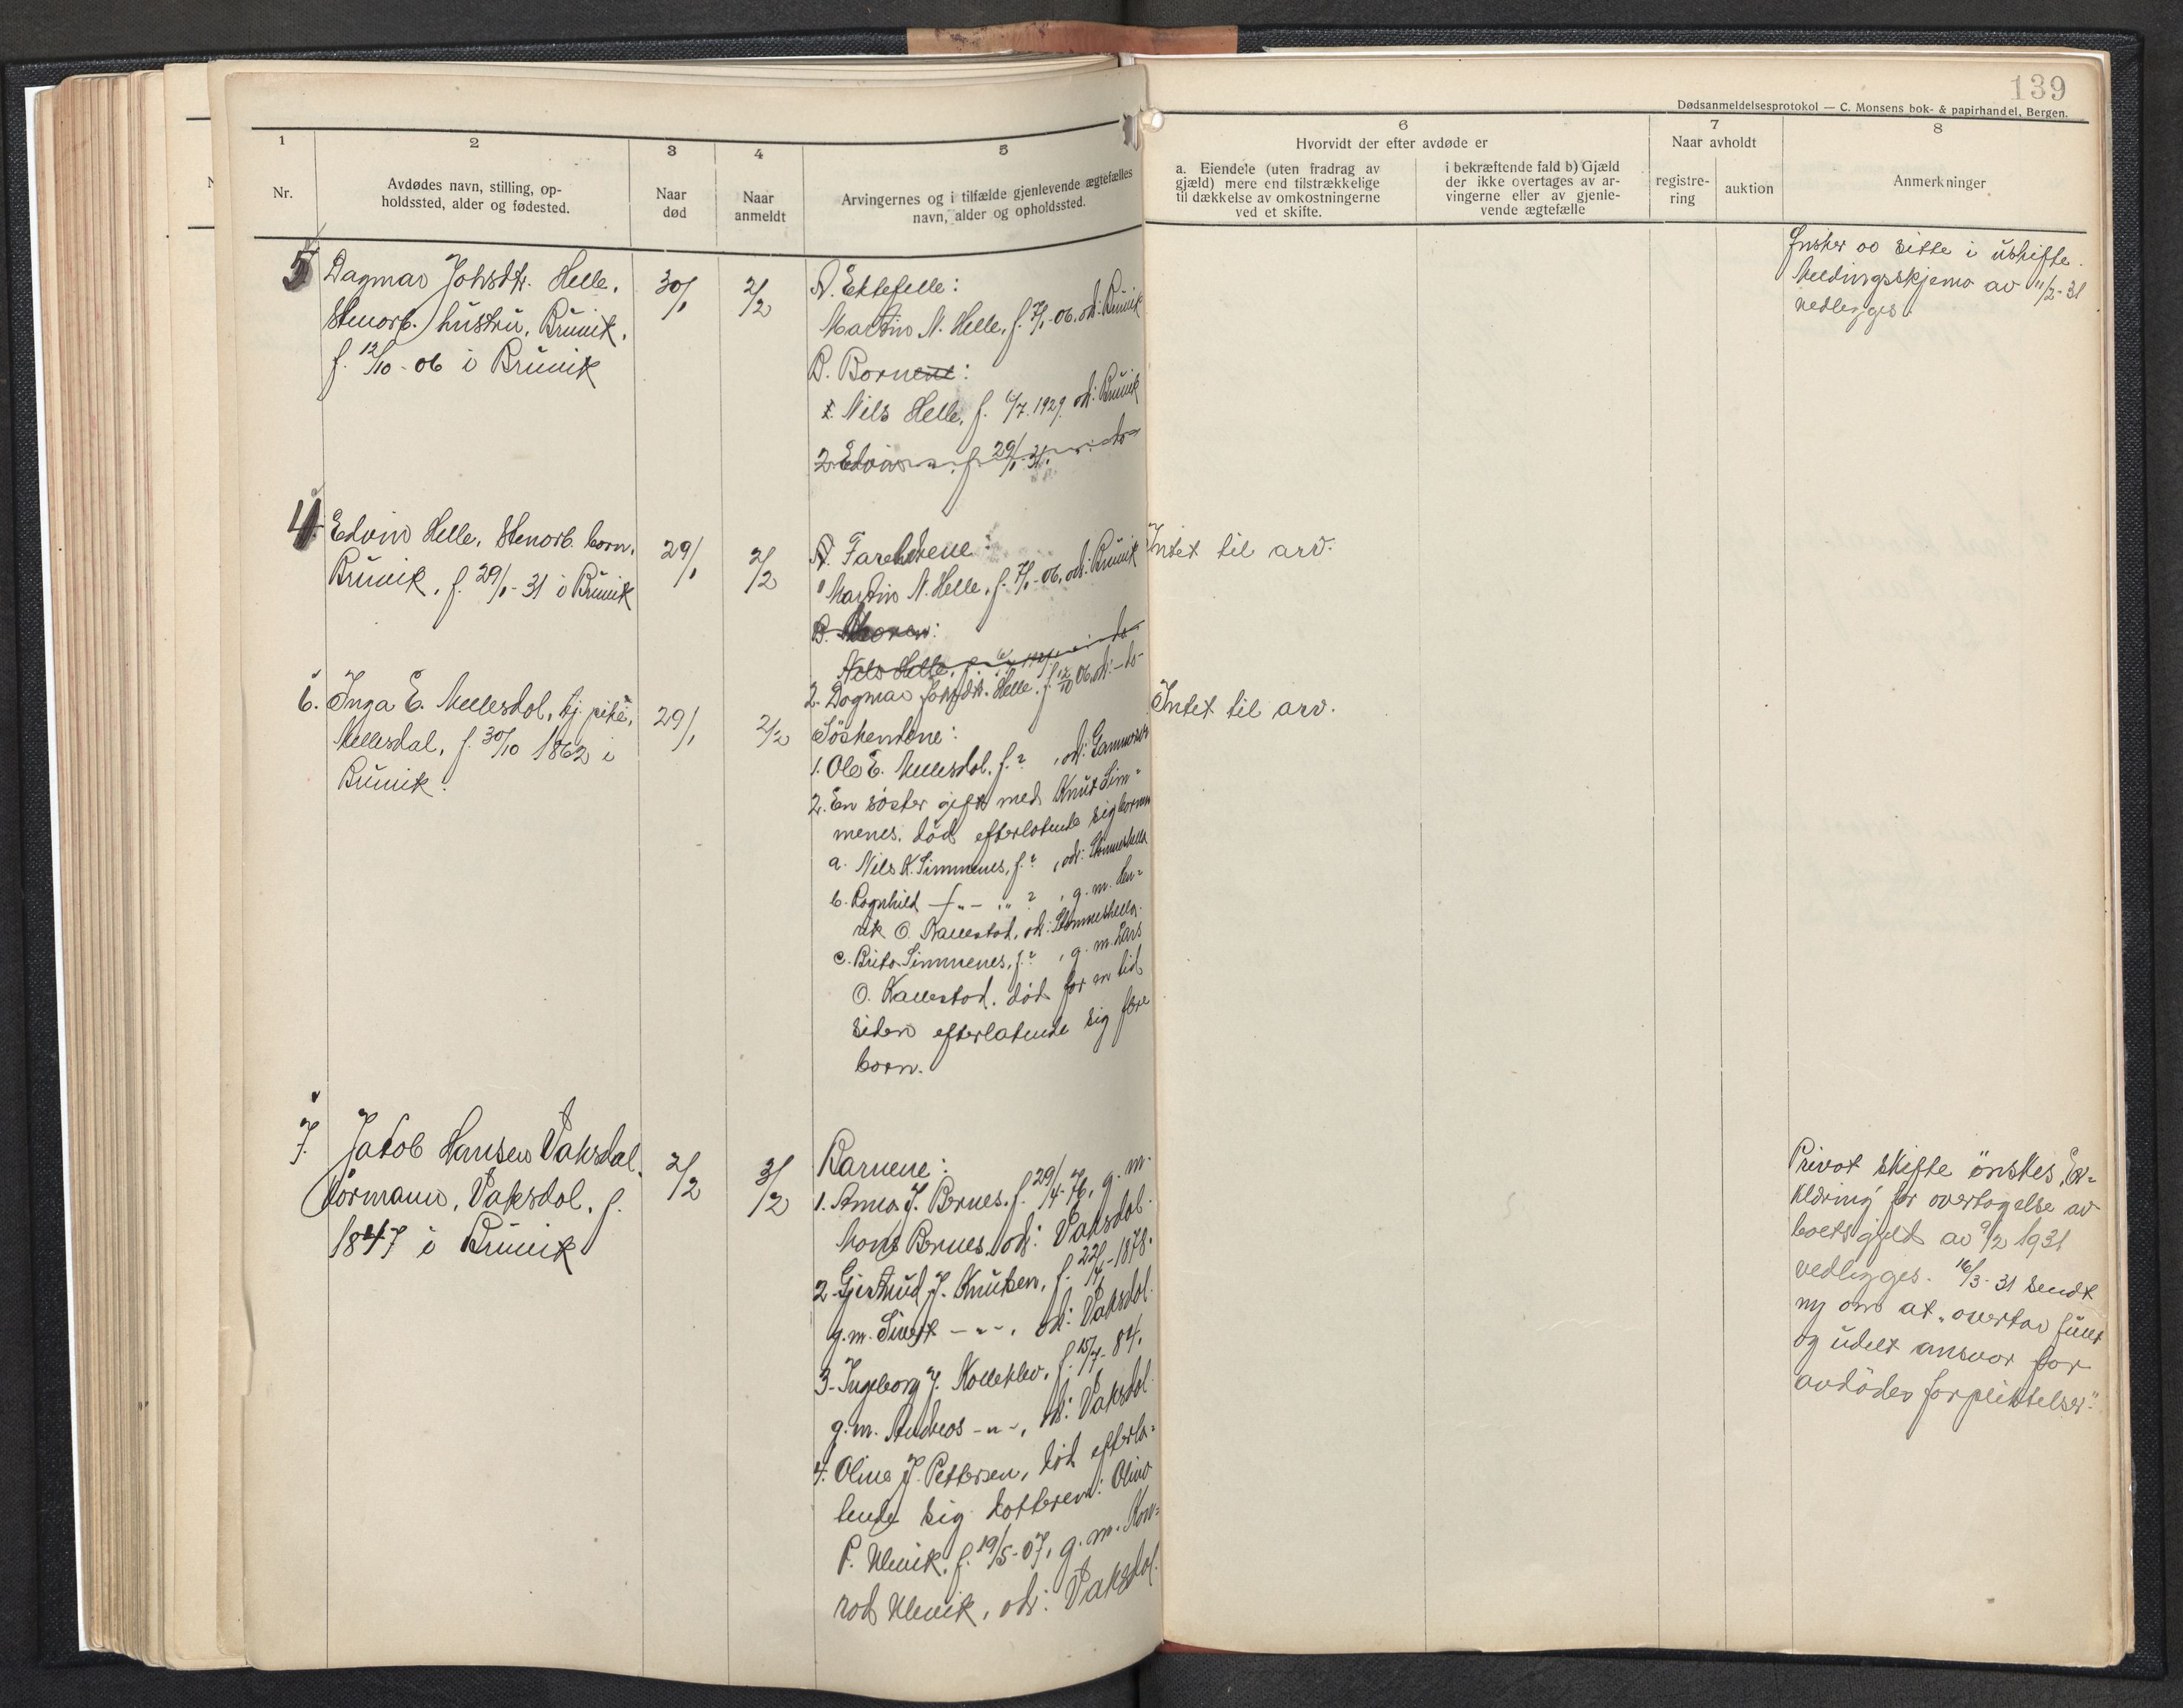 139
Dødsanmeldelsesprotokol — C. Monsens bok- & papirhandel, Bergen.
1
2
3
4
5
6
7
8
Nr.
Avdødes navn, stilling, op-
holdssted, alder og fødested.
Naar
død
Naar
anmeldt
Arvingernes og i tilfælde gjenlevende ægtefælles
navn, alder og opholdssted.
Hvorvidt der efter avdøde er
a. Eiendele (uten fradrag av
gjæld) mere end tilstrækkelige
til dækkelse av omkostningerne
ved et skifte.
i bekræftende fald b) Gjæld
der ikke overtages av ar-
vingerne eller av gjenle-
vende ægtefælle
Naar avholdt
registre-
ring
auktion
Anmerkninger
5 Dagmar Johsdtr. Helle,
Stenarb. hustru, Bruvik,
f. 12/10-06 i Bruvik
30/1
2/2
A. Ektefelle:
Martin N. Helle, f. 7/1-06, ods: Bruvik
B. Bornene:
1. Nils Helle, f. 6/7.1929. ods: Bruvik
2 Edvin -"-, f. 29/1-31.
Ønsker aa sitte i uskifte.
Meldingsskjema av 11/2-31
vedlegges.
4. Edvin Helle, Stenarb. born,
Bruvik, f. 29/1-31 i Bruvik
29/1
2/2
A. Foreldrene:
1 Martin N. Helle, f. 7/1-06, ods: Bruvik
B.
Nils Helle, f.
2. Dagmar Johsdtr. Helle, f. 12/10 06, ods: -do-
Intet til arv.
6. Inga E. Mellesdal, tj. pike,
Mellesdal, f. 30/10 1862 i
Bruvik.
29/1
2/2
Søskendene:
1. Ole E. Mellesdal, f. ?, ods:
2. En søster gift med Knut Sim-
menes, død efterlatende sig bornene
a. Nils K. Simmenes, f. ?, ods: Stamneshella
b. Ragnhild -"- " ?, g. m. Hen-
rik O. Kallestad, ods: Stamneshella.
c. Brita Simmenes, f. ?, g. m. Lars
O. Kallestad, død for en tid
siden efterlatende sig flere
born.
Intet til arv.
7. Jakob Hansen Vaksdal,
formann, Vaksdal, f.
1847 i Bruvik
2/2
3/2
Barnene:
1. Anna J. Bernes, f. 29/4-76, g. m.
Mons Bernes, ods: Vaksdal.
2. Gjertrud J. Knutsen, f. 22/4-1878.
g. m. Sivert -"-, ods: Vaksdal.
3. Ingeborg J. Kolleklev, f. 15/7-84,
g. m. Andreas -"-, ods: Vaksdal.
4. Oline J. Pettersen, død efterla-
tende sig datteren: Olina
P. Ulevik, f. 19/5-07, g. m. Kon-
rad Ulevik, ods: Vaksdal.
Privat skifte ønskes. Er-
klæring for overtagelse av
boets gjeld av 9/2 1931
vedlegges. 16/3-31 sendt
ny om at „overtar fullt
og udelt ansvar for
avdødes forpliktelser."